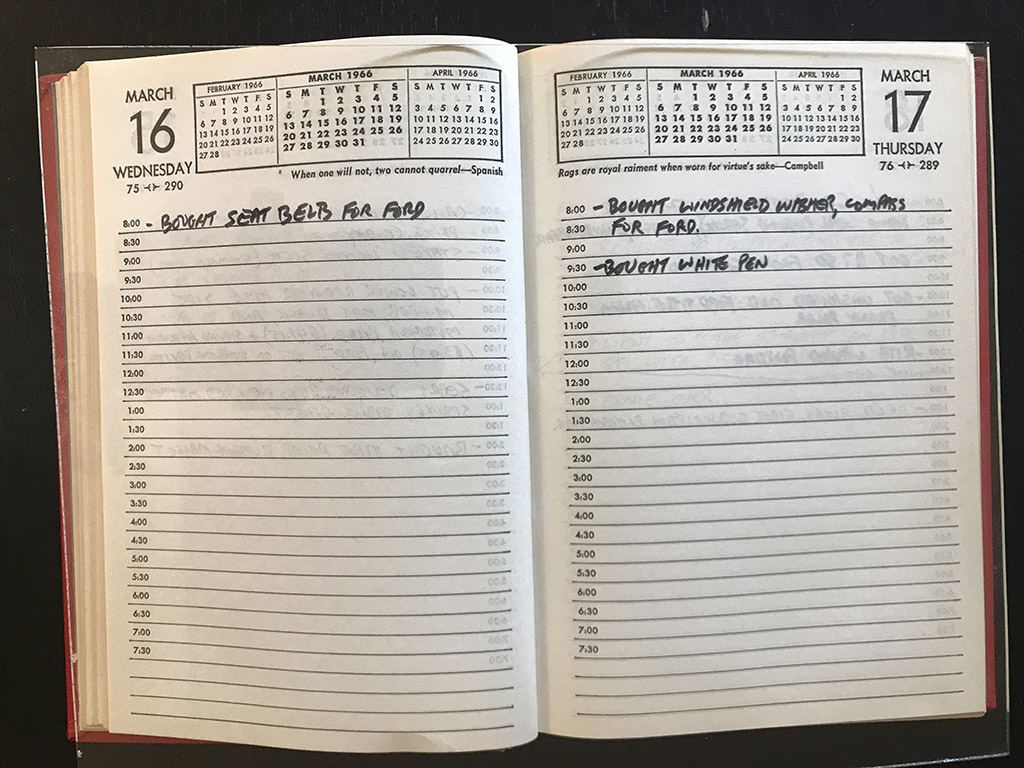 MARCH
16
WEDNESDAY
75 290
FEBRUARY 1966
S M T W T F S
1 2 3 4 5
6 7 8 9 10 11 12
13 14 15 16 17 18 19
20 21 22 23 24 25 26
27 28
MARCH 1966
S M T W T F S
1 2 3 4 5
6 7 8 9 10 11 12
13 14 15 16 17 18 19
20 21 22 23 24 25 26
27 28 29 30 31
APRIL 1966
S M T W T F S
1 2
3 4 5 6 7 8 9
10 11 12 13 14 15 16
17 18 19 20 21 22 23
24 25 26 27 28 29 30
When one will not, two cannot quarrel—Spanish
8:00 - BOUGHT SEAT BELTS FOR FORD
8:30
9:00
9:30
10:00
10:30
11:00
11:30
12:00
12:30
1:00
1:30
2:00
2:30
3:00
3:30
4:00
4:30
5:00
5:30
6:00
6:30
7:00
7:30
FEBRUARY 1966
S M T W T F S
1 2 3 4 5
6 7 8 9 10 11 12
13 14 15 16 17 18 19
20 21 22 23 24 25 26
27 28
MARCH 1966
S M T W T F S
1 2 3 4 5
6 7 8 9 10 11 12
13 14 15 16 17 18 19
20 21 22 23 24 25 26
27 28 29 30 31
APRIL 1966
S M T W T F S
1 2
3 4 5 6 7 8 9
10 11 12 13 14 15 16
17 18 19 20 21 22 23
24 25 26 27 28 29 30
MARCH
17
THURSDAY
76 289
Rags are royal raiment when worn for virtue's sake—Campbell
8:00 - BOUGHT WINDSHIELD WASHER, COMPASS
8:30 FOR FORD.
9:00
9:30 - BOUGHT WHITE PEN
10:00
10:30
11:00
11:30
12:00
12:30
1:00
1:30
2:00
2:30
3:00
3:30
4:00
4:30
5:00
5:30
6:00
6:30
7:00
7:30